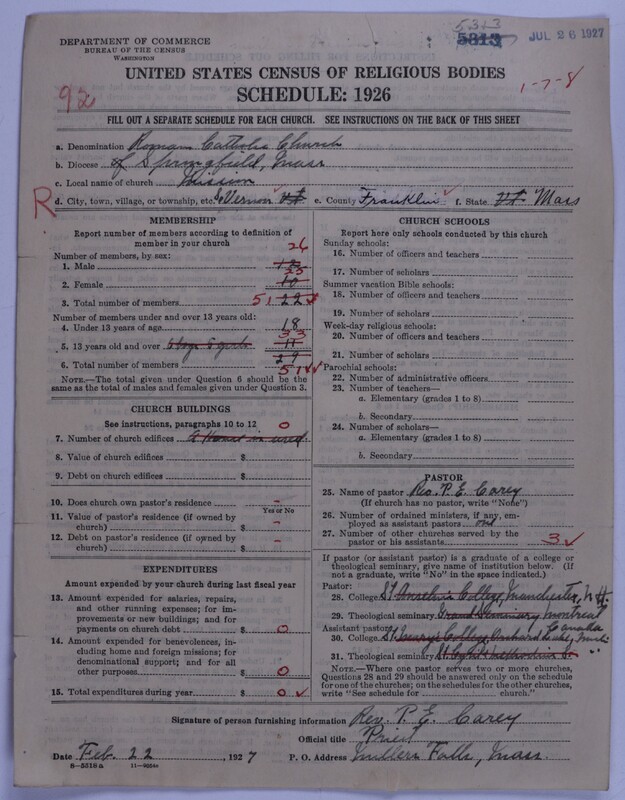 5313
5313
JUL 26 1927
DEPARTMENT OF COMMERCE
BUREAU OF THE CENSUS
WASHINGTON
UNITED STATES CENSUS OF RELIGIOUS BODIES
92
SCHEDULE: 1926
1-7-8
FILL OUT A SEPARATE SCHEDULE FOR EACH CHURCH. SEE INSTRUCTIONS ON THE BACK OF THIS SHEET
a. Denomination Roman Catholic Church
b. Diocese of Springfield, Mass
c. Local name of church Mission
R d. City, town, village, or township, etc. Vernon Vt e. County Franklin f. State Vt Mass
MEMBERSHIP
Report number of members according to definition of member in your church
Number of members, by sex:
1. Male 12 26
2. Female 10 25
3. Total number of members 51 22
Number of members under and over 13 years old:
4. Under 13 years of age 18
5. 13 years old and over 11 33
6. Total number of members 29 51
NOTE.—The total given under Question 6 should be the same as the total of males and females given under Question 3.
CHURCH BUILDINGS
See instructions, paragraphs 10 to 12
7. Number of church edifices a House is used. 0
8. Value of church edifices $
9. Debt on church edifices $
10. Does church own pastor's residence -
Yes or No
11. Value of pastor's residence (if owned by church) $ -
12. Debt on pastor's residence (if owned by church) $ -
EXPENDITURES
Amount expended by your church during last fiscal year
13. Amount expended for salaries, repairs, and other running expenses; for improvements or new buildings; and for payments on church debt $ 0
14. Amount expended for benevolences, including home and foreign missions; for denominational support; and for all other purposes $ 0
15. Total expenditures during year $ 0
CHURCH SCHOOLS
Report here only schools conducted by this church
Sunday schools:
16. Number of officers and teachers
17. Number of scholars
Summer vacation Bible schools:
18. Number of officers and teachers
19. Number of scholars
Week-day religious schools:
20. Number of officers and teachers
21. Number of scholars
Parochial schools:
22. Number of administrative officers
23. Number of teachers—
a. Elementary (grades 1 to 8)
b. Secondary
24. Number of scholars—
a. Elementary (grades 1 to 8)
b. Secondary
PASTOR
25. Name of pastor Rev. P. E. Carey
(If church has no pastor, write "None")
26. Number of ordained ministers, if any, employed as assistant pastors one
27. Number of other churches served by the pastor or his assistants 3
If pastor (or assistant pastor) is a graduate of a college or theological seminary, give name of institution below. (If not a graduate, write "No" in the space indicated.)
Pastor:
28. College St Anselm's College, Manchester, N.H.
29. Theological seminary Grand Seminary Montreal Canada
Assistant pastor:
30. College St Mary's College, Orchard Lake, Mich.
31. Theological seminary
NOTE.—Where one pastor serves two or more churches, Questions 28 and 29 should be answered only on the schedule for one of the churches; on the schedules for the other churches, write "See schedule for ........ church."
Signature of person furnishing information Rev. P. E. Carey
Official title Priest
Date Feb. 22, 1927 P. O. Address Millers Falls, Mass.
8-5316a 11-9264